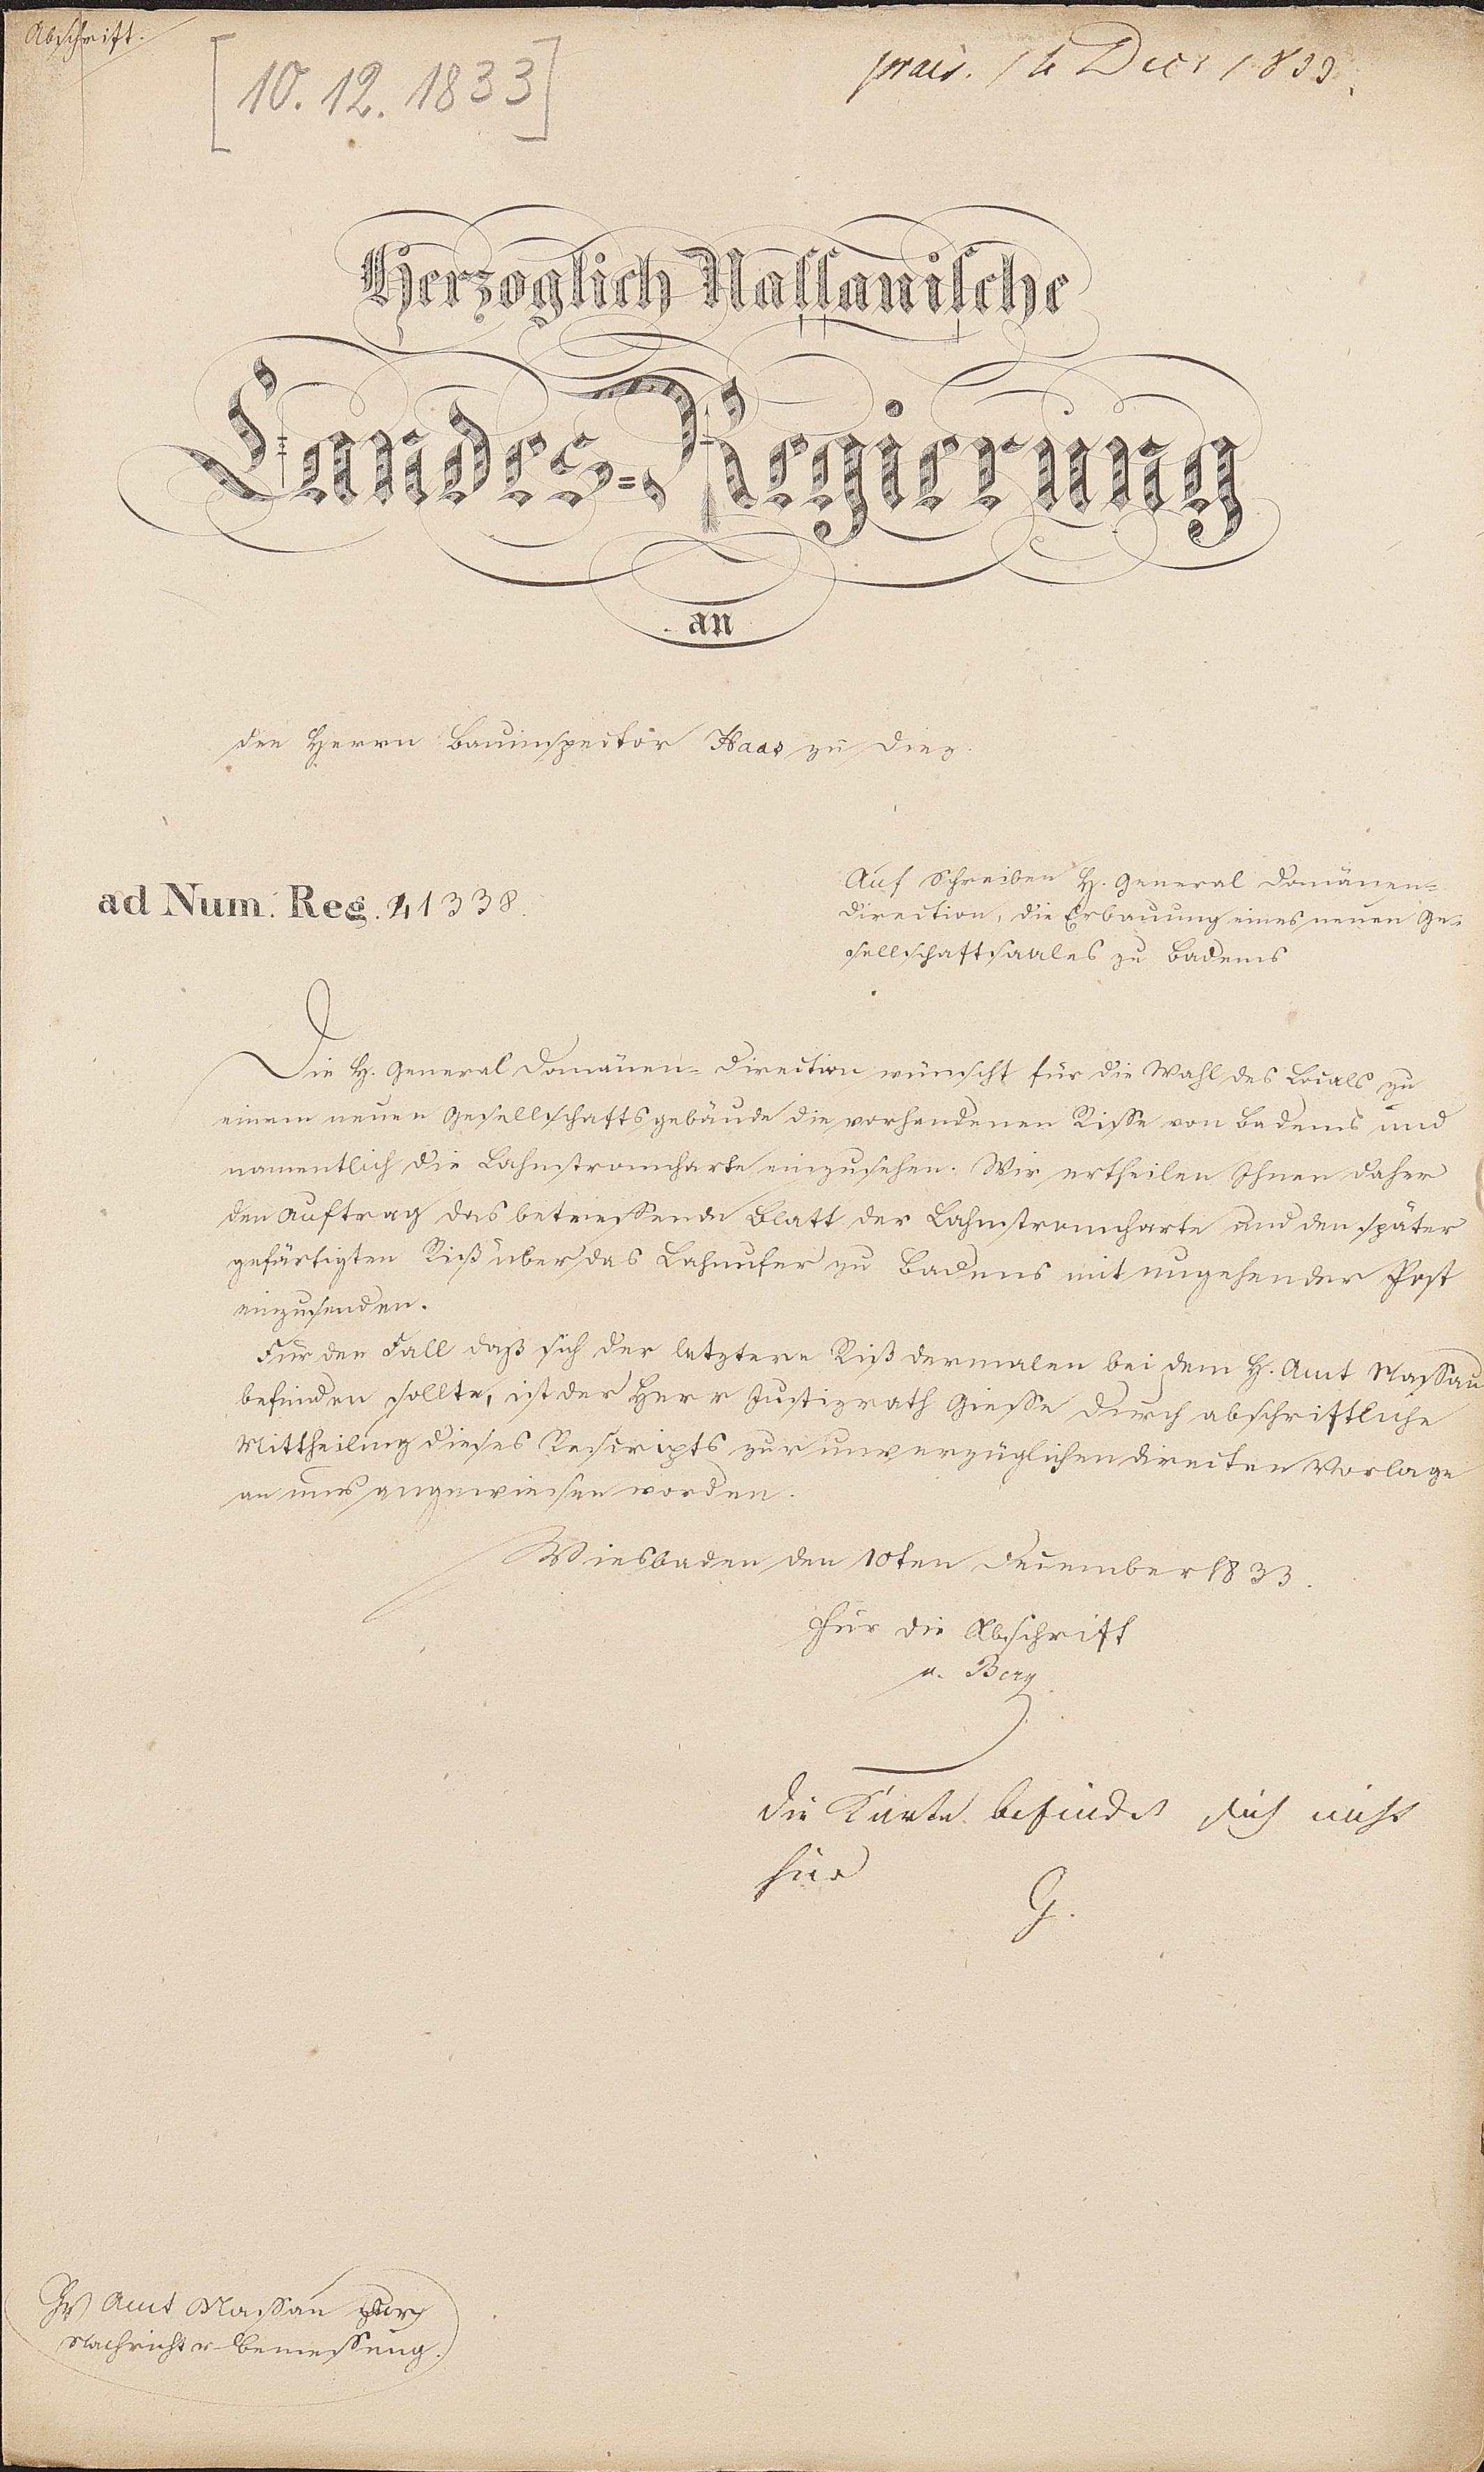 Abschrift.
[10. 12. 1833]
präs. 14 Decr 1833.
Herzoglich Nassauische
Landes-Regierung
an
den Herrn Bauinspector Haas zu Diez.
ad Num. Reg. 41338.
Auf Schreiben H. General Domänen-
direction, die Erbauung eines neuen Ge-
sellschaftsaales zu Badems
Die H. General Domänen-Direction wünscht für die Wahl des Locals zu
einem neuen Gesellschaftsgebäude die vorhandenen Risse von Badems und
namentlich die Lahnstromcharte einzusehen. Wir ertheilen Ihnen daher
den Auftrag das betreffende Blatt der Lahnstromcharte und den später
gefärtigten Riß über das Lahnufer zu Badems mit umgehender Post
einzusenden.
Für den Fall daß sich der letztere Riß dermalen bei dem H. Amt Nassau
befinden sollte, ist der Herr Justizrath Giesse durch abschriftliche
Mittheilung dieses Rescripts zur unverzüglichen directen Vorlage
an uns angewiesen worden.
Wiesbaden den 10ten December 1833.
Für die Abschrift
v. Berg
Die Karte befindet sich nicht
hier
G.
Amt Nassau zur
Nachricht u Bemessung.